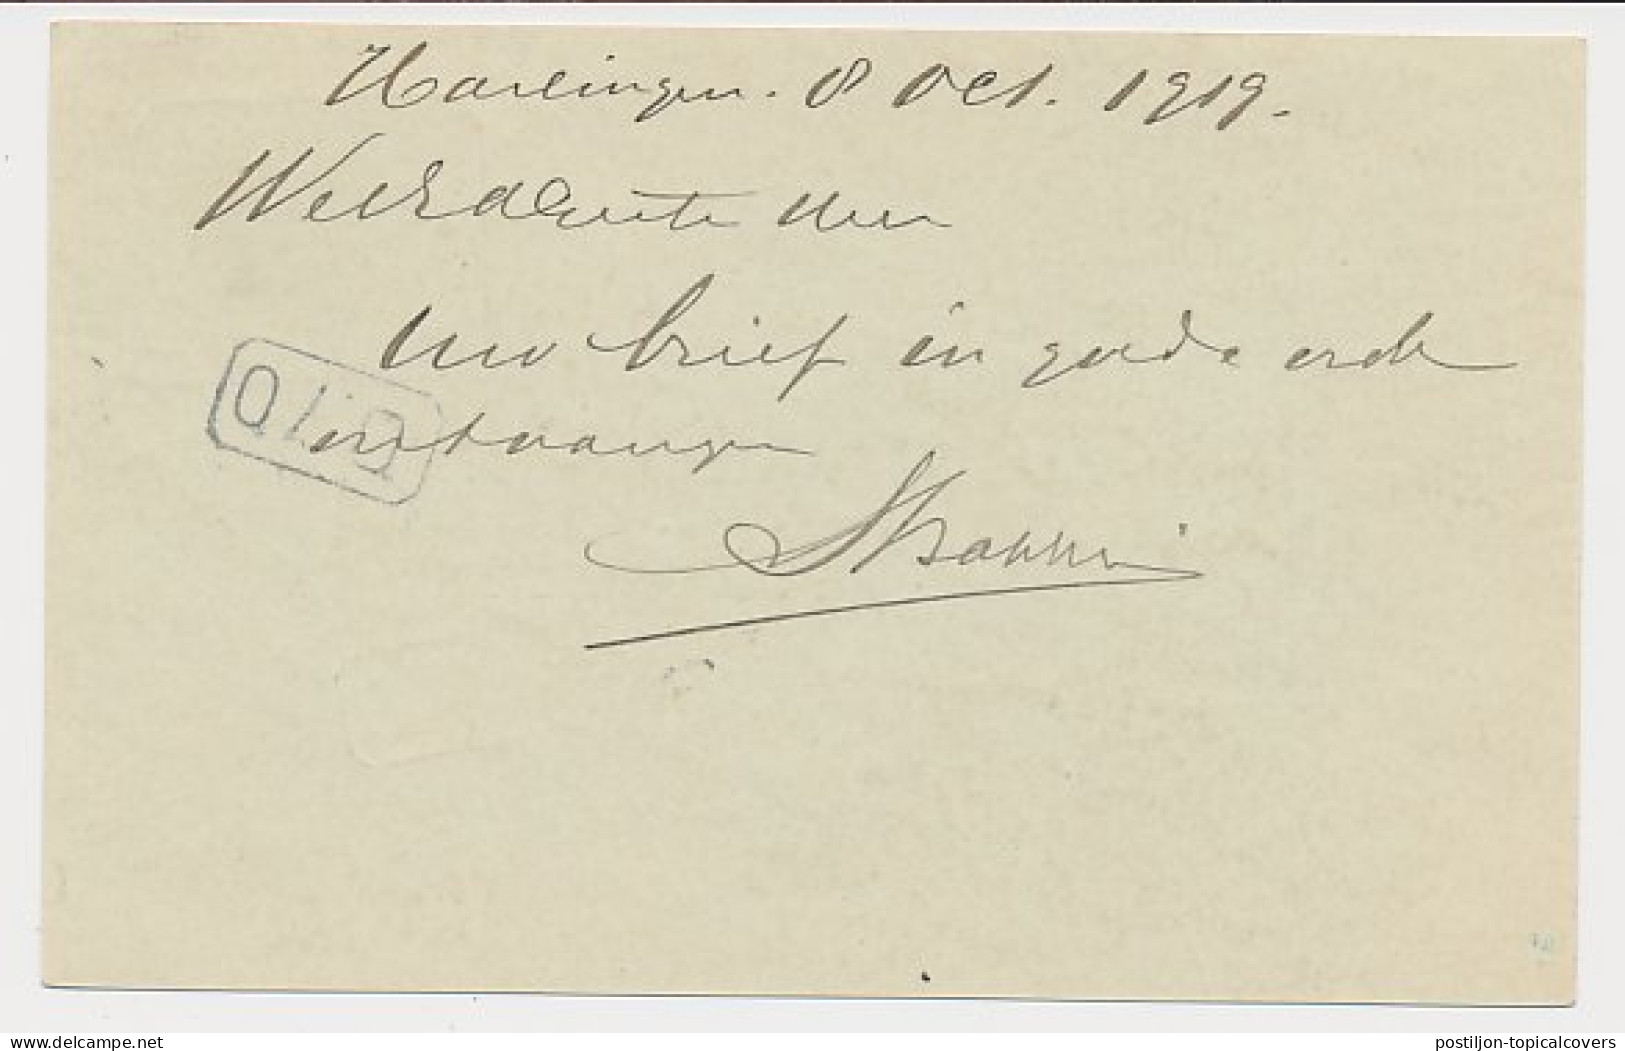 Harlingen. 8 Oct. 1919.
WelEdGeb... Heer
Uw brief in goede orde
ontvangen
Bakker
The Netherlands
postiljon-topicalcovers